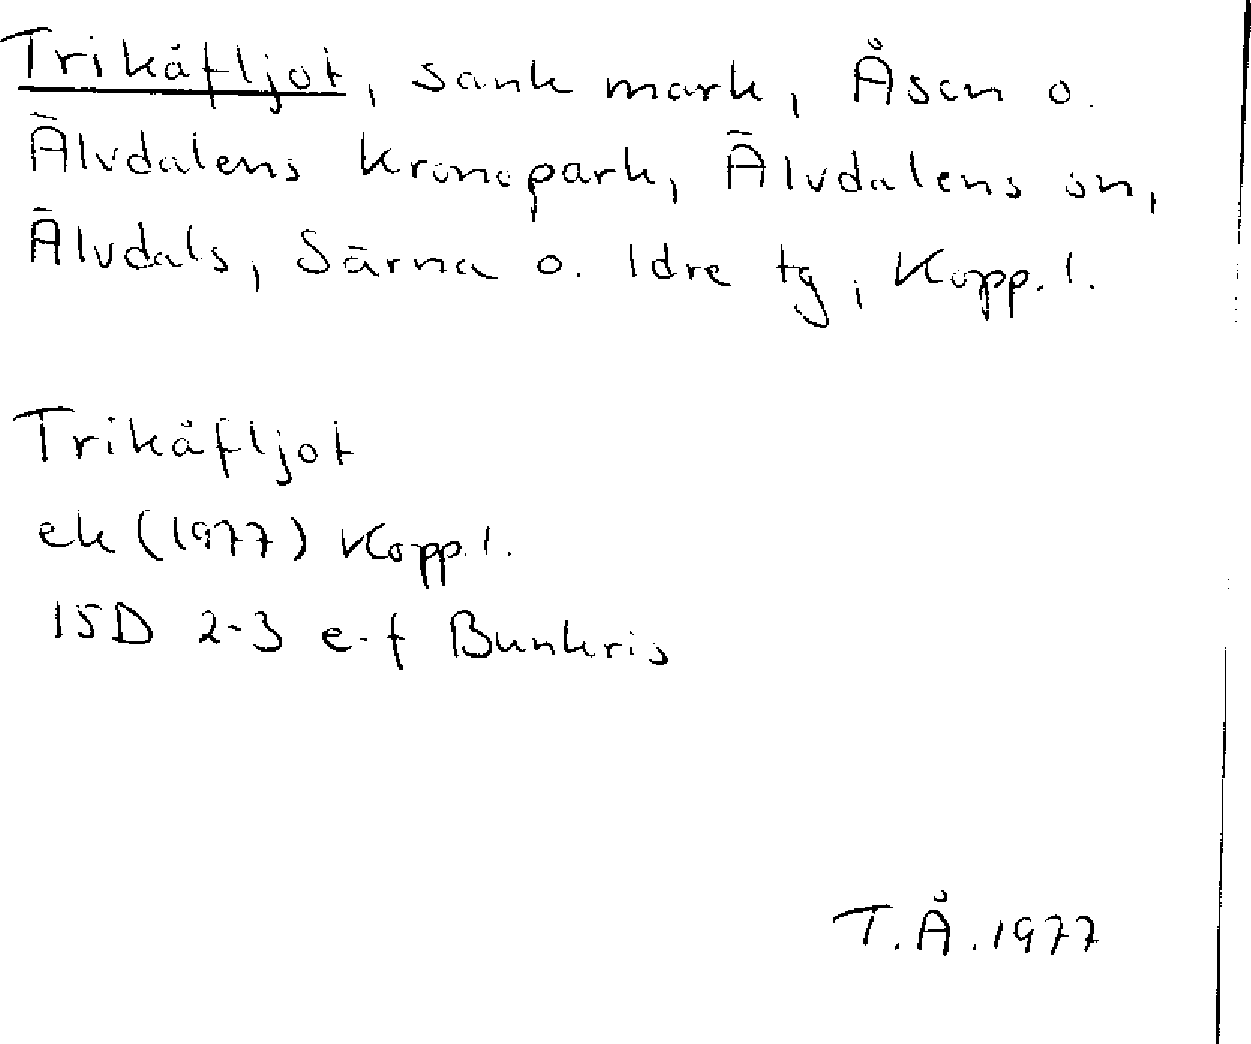 Trikåfljot, sank mark, Åsen o.
Älvdalens kronopark, Älvdalens sn,
Älvdals, Särna o. Idre tg, Kopp. l.
Trikåfljot
ek (1977) Kopp. l.
15D 2-3 e-f Bunkris
T.Å. 1977